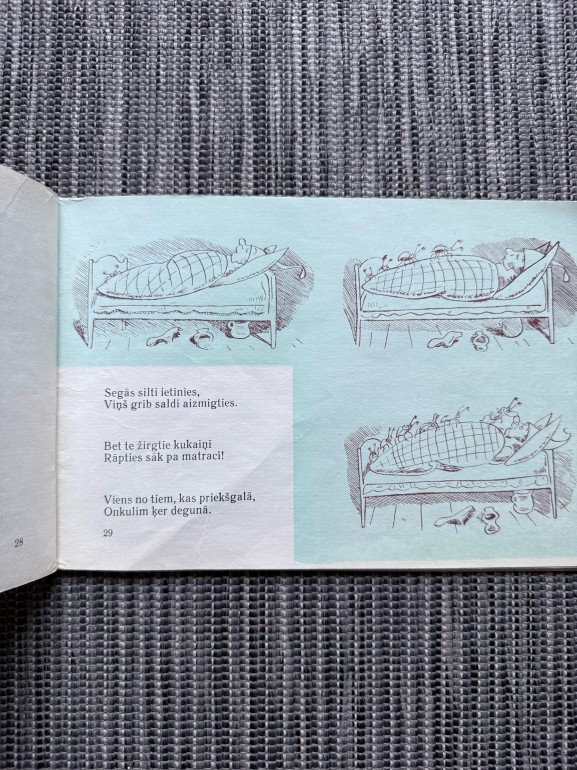 Segās silti ietinies,
Viņš grib saldi aizmigties.
Bet te žirgtie kukaiņi
Rāpties sāk pa matraci!
Viens no tiem, kas priekšgalā,
Onkulim ķer degunā.
29
28